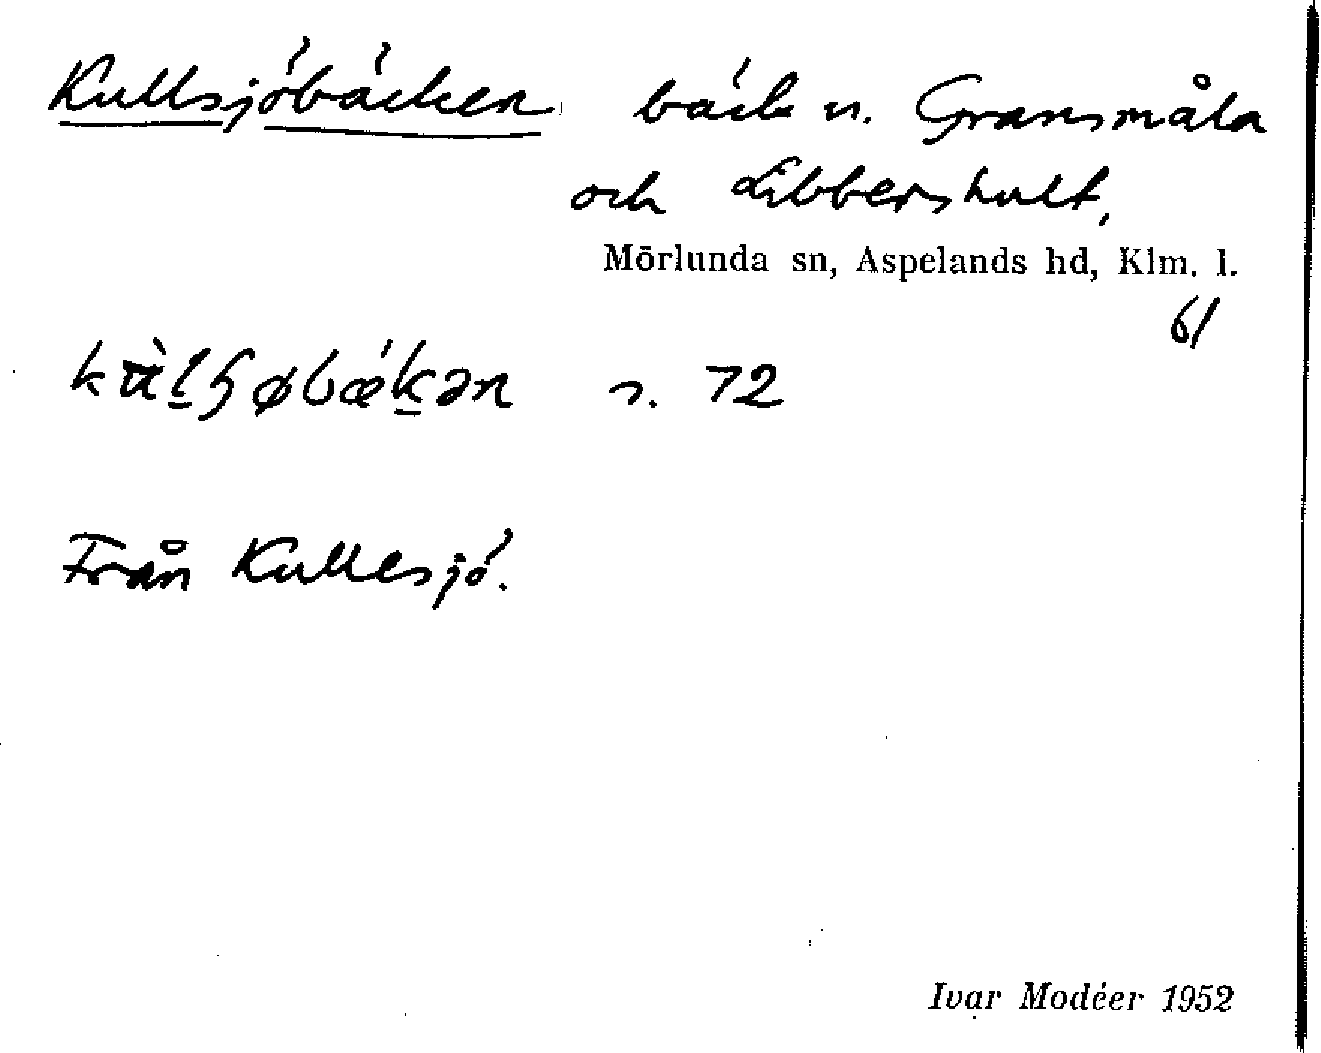 Kullsjöbäcken bäck u. Gransmåla
och Libbershult,
Mörlunda sn, Aspelands hd, Klm. l.
61
kùlʃøbǽkən s. 72
Från Kullesjö.
Ivar Modéer 1952